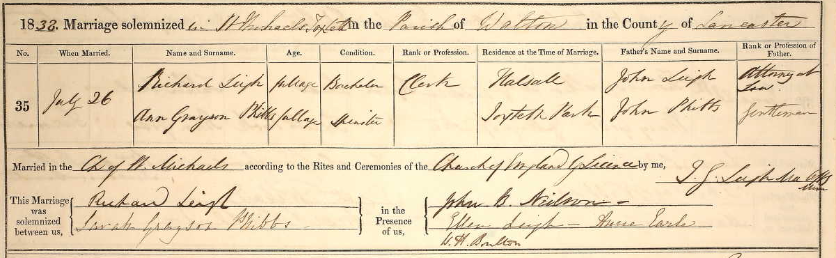 1838. Marriage solemnized in St Michaels Toxteth in the Parish of Walton in the County of Lancaster
No. When Married. Name and Surname. Age. Condition. Rank or Profession. Residence at the Time of Marriage. Father's Name and Surname. Rank or Profession of Father.
35 July 26 Richard Leigh full age Bachelor Clerk Halsall John Leigh Attorney at Law
Ann Grayson Phibbs full age Spinster Toxteth Park John Phibbs Gentleman
Married in the Ch of St. Michaels according to the Rites and Ceremonies of the Church of England by Licence by me, T. G. Leigh
This Marriage was solemnized between us, Richard Leigh in the Presence of us, John B. Neilson
Sarah Grayson Phibbs Ellen Leigh - Anne Earle
W. H. Boulton